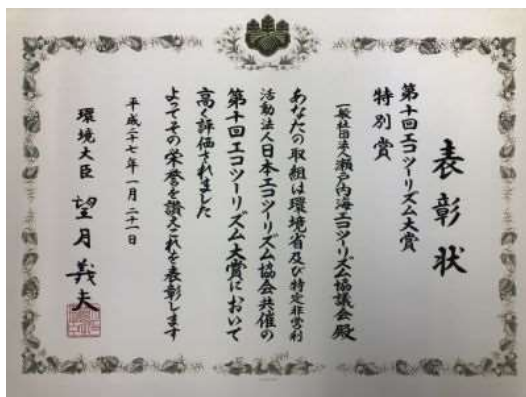 表彰状
第十回エコツーリズム大賞
特別賞
一般社団法人瀬戸内海エコツーリズム協議会 殿
あなたの取組は環境省及び特定非営利
活動法人日本エコツーリズム協会共催の
第十回エコツーリズム大賞において
高く評価されました
よってその栄誉を讃えこれを表彰します
平成二十七年一月二十一日
環境大臣 望月義夫